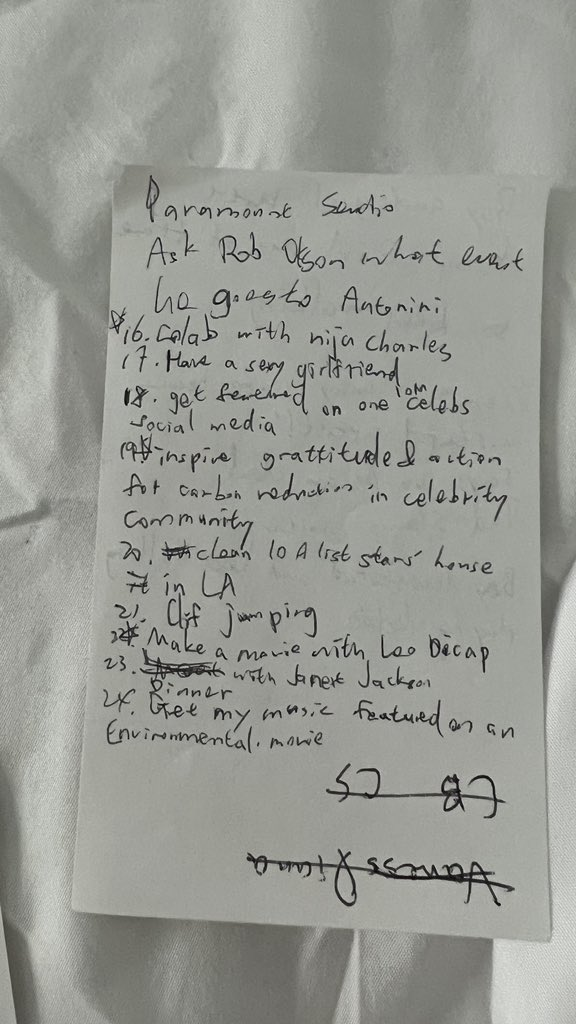 Paramount Studio
Ask Rob Olson what event
he goes to Antonini
*16. Colab with nija Charles
17. Have a sexy girlfriend
18. get featured on one 10M celebs
social media
19* inspire grattitude & action
for carbon reduction in celebrity
Community
20. clean 10 A list stars' house
in LA
21. Clif jumping
22* Make a movie with Leo Dicap
23. Dinner with Janet Jackson
24. Get my music featured on an
Environmental. movie